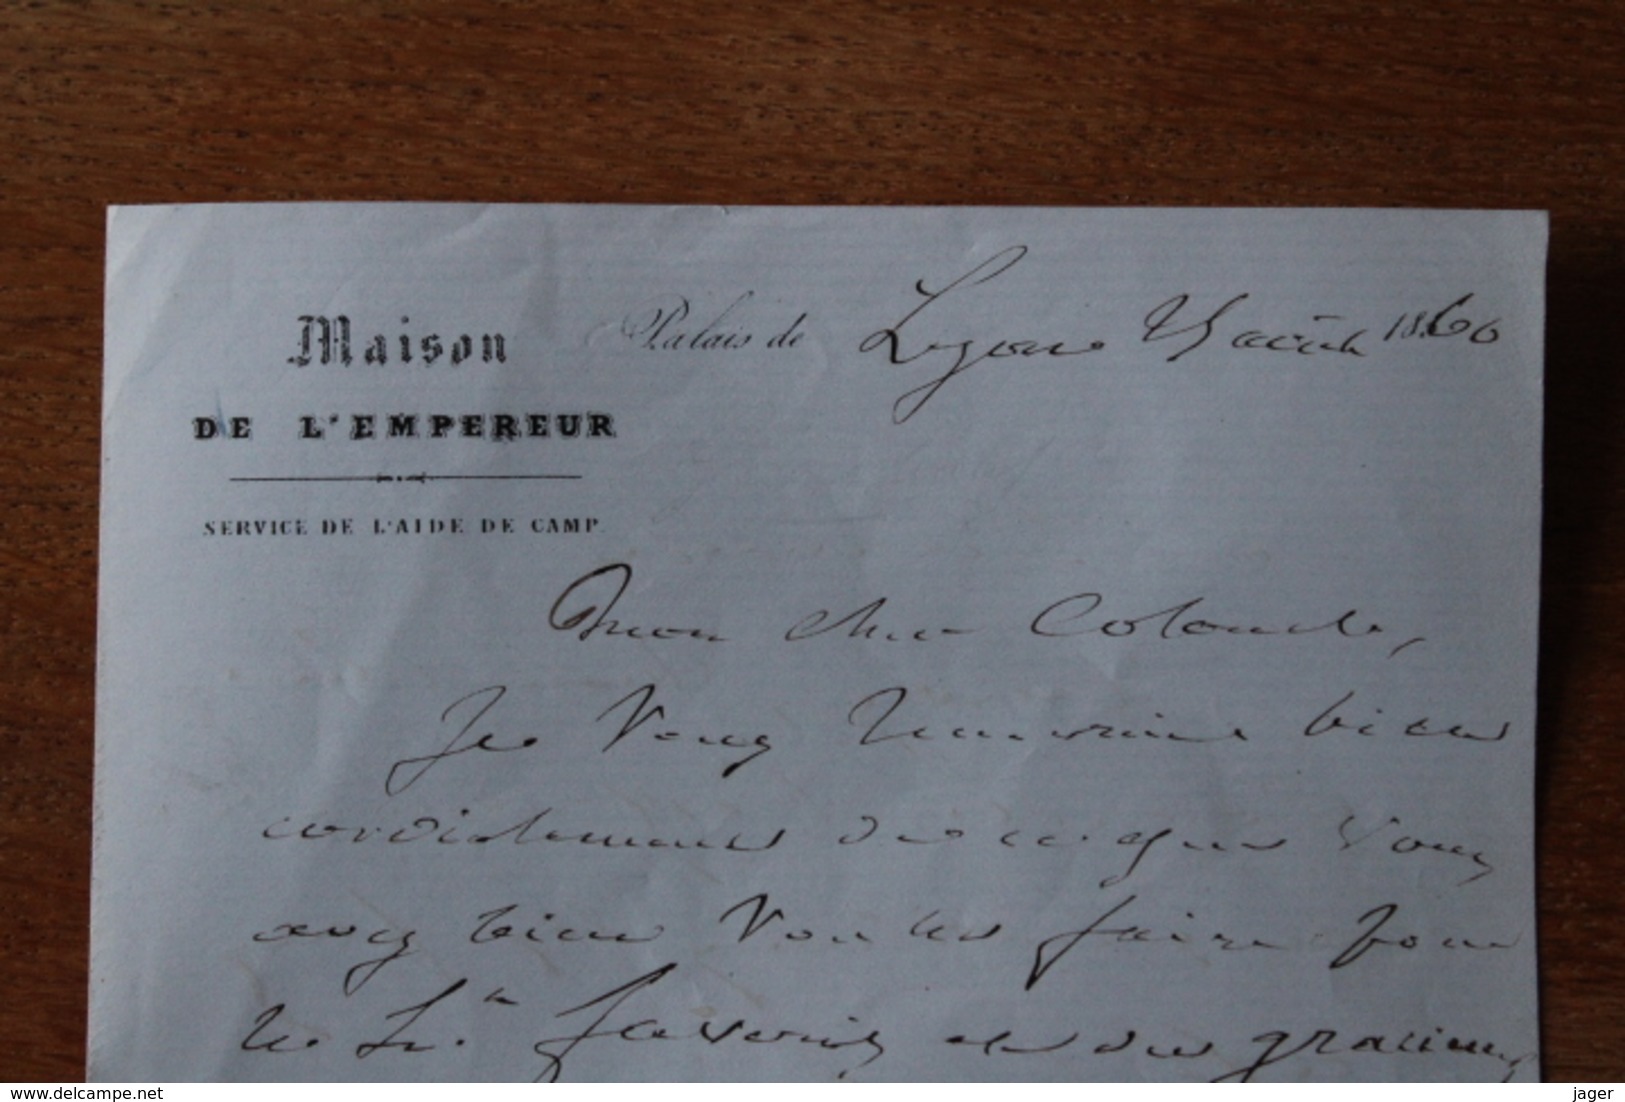 Maison
DE L'EMPEREUR
SERVICE DE L'AIDE DE CAMP
Palais de Lyon 25 août 1860
Mon cher Colonel,
Je vous remercie bien
cordialement de ce que vous
avez bien voulu faire pour
le Lt et de gracieux
delcampe.net
jager